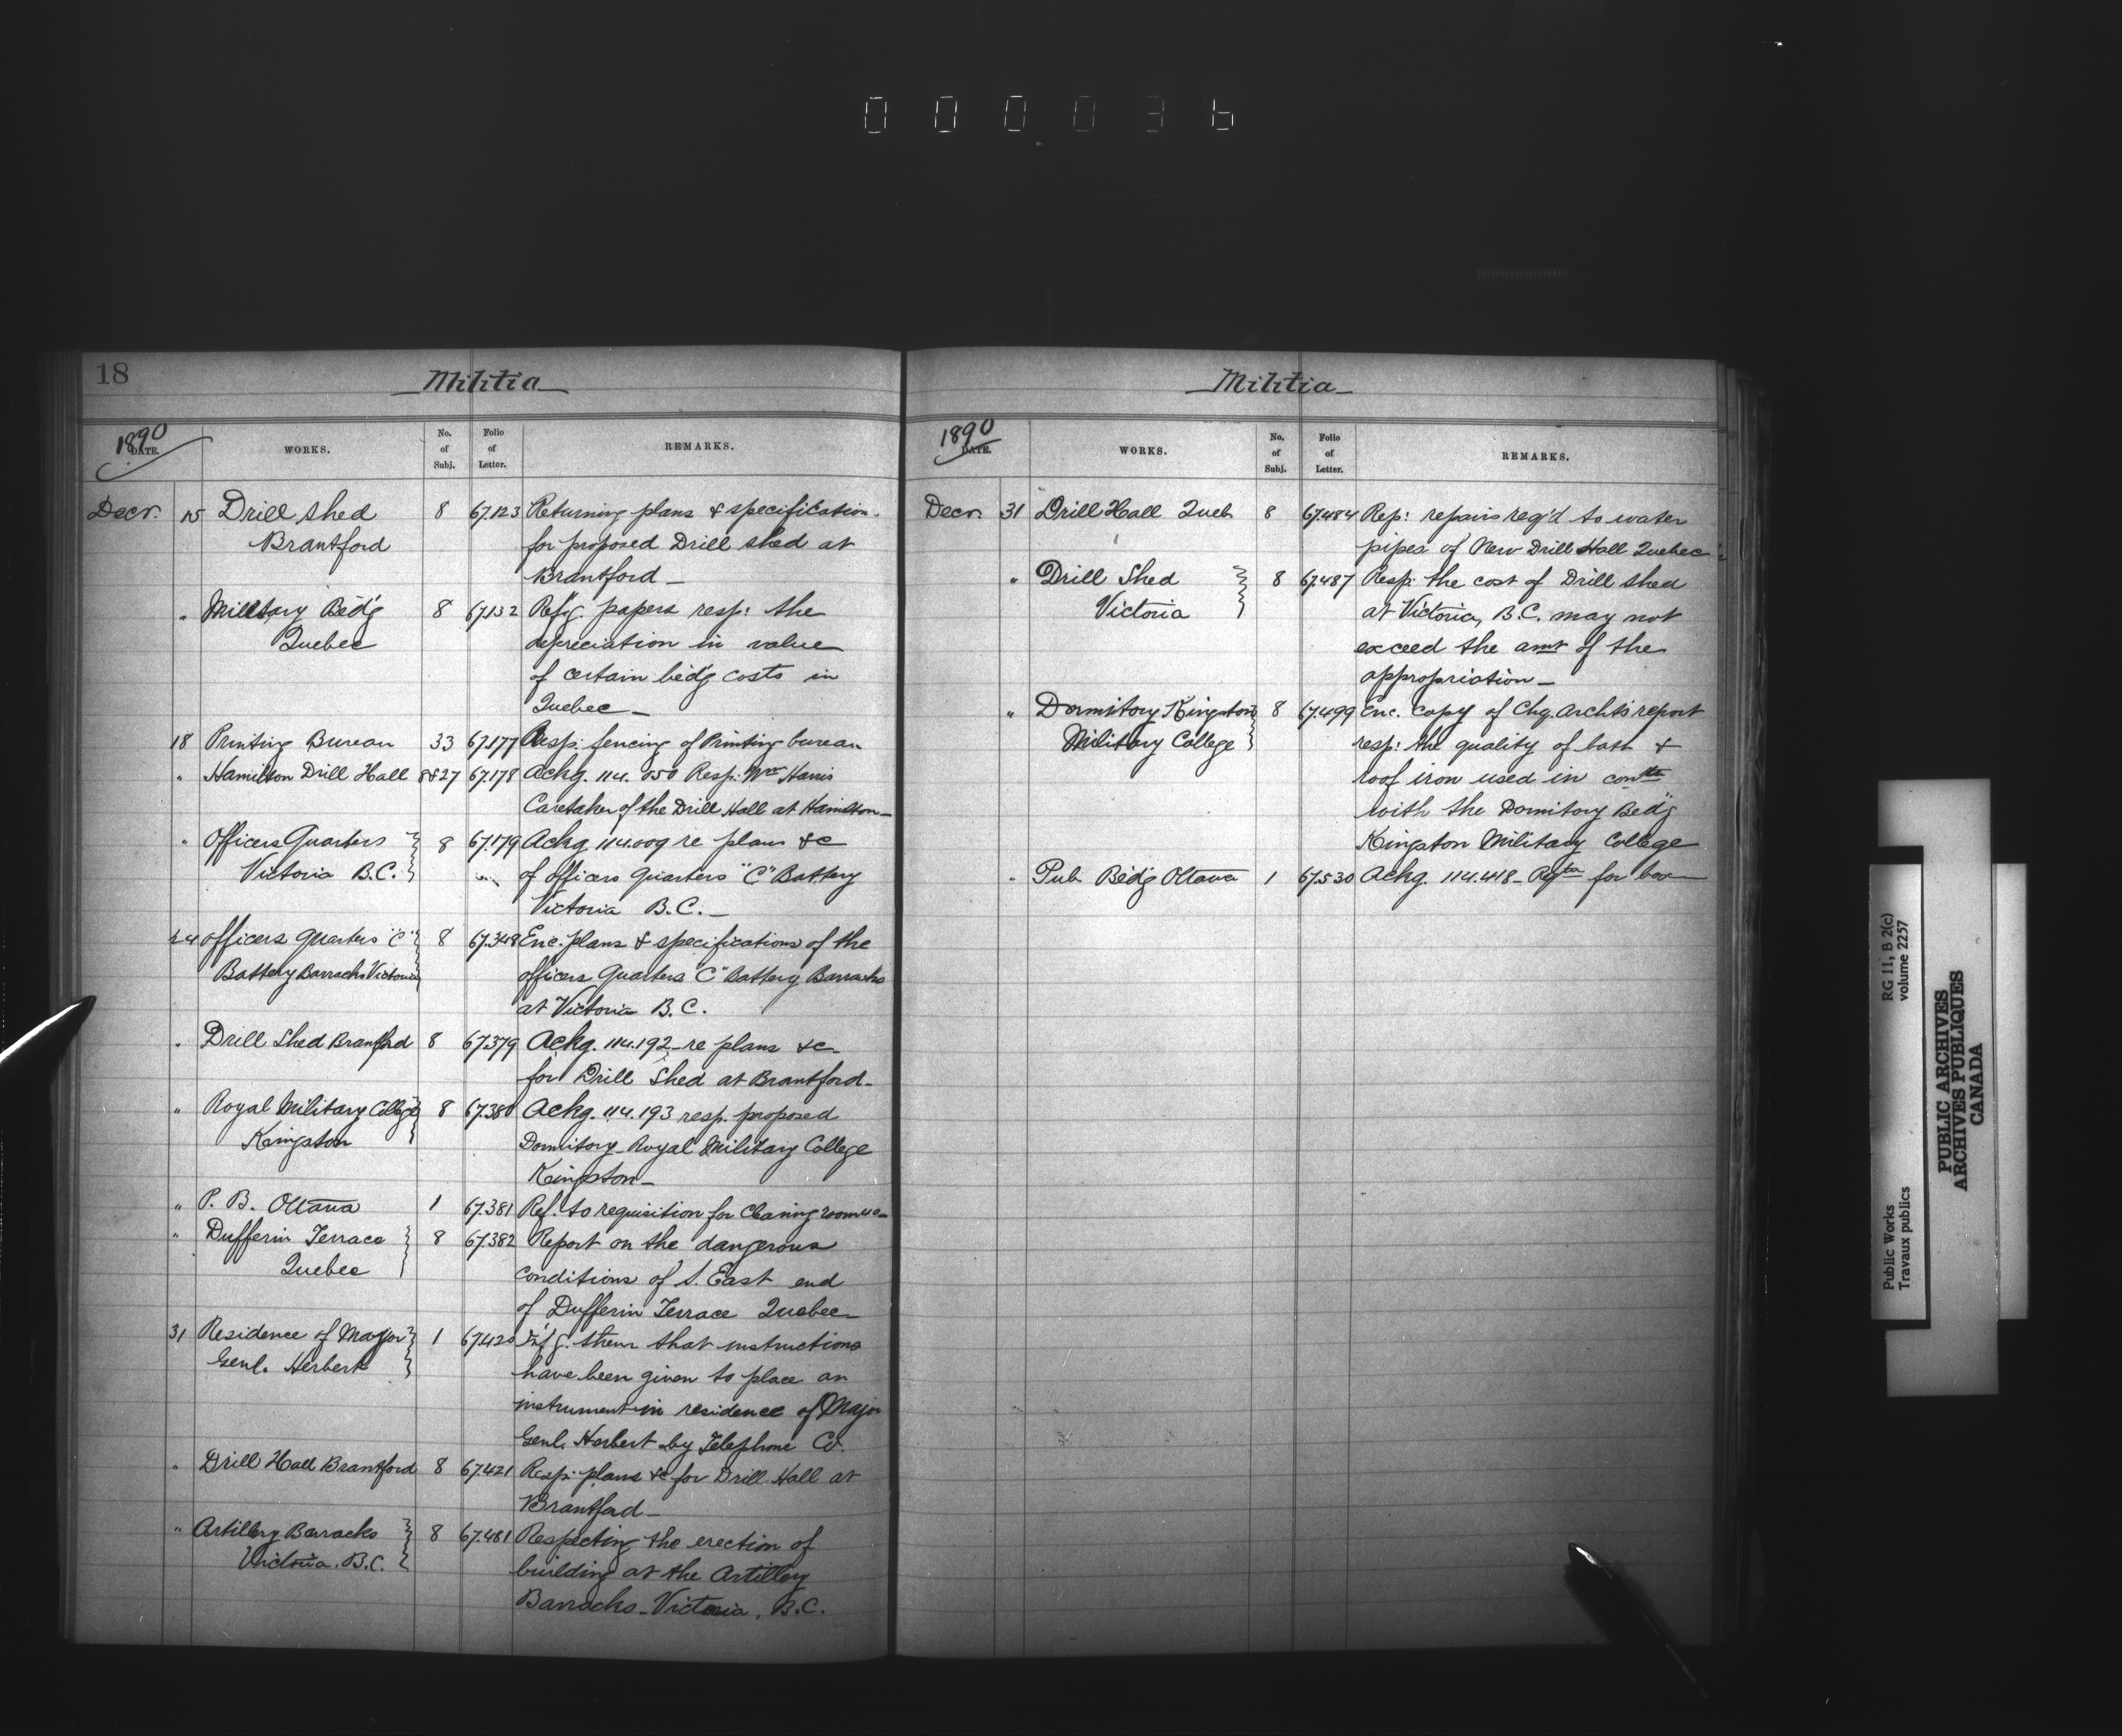 000036
18
Militia
1890
DATE.
WORKS.
No. of Subj.
Folio of Letter.
REMARKS.
Decr. 15 Drill shed 8 67.123 Returning plans & specification.
Brantford for proposed Drill shed at
Brantford _
" Military Bldg 8 67.132 Ref'g. papers resp: the
Quebec depreciation in value
of certain bldg costs in
Quebec _
18 Printing Bureau 33 67.177 Resp: fencing of Printing bureau
" Hamilton Drill Hall 8&27 67.178 Ackg. 114.050 Resp: Wm Harris
Caretaker of the Drill Hall at Hamilton _
" Officers Quarters 8 67.179 Ackg 114.009 re plans &c
Victoria B.C. of officers Quarters "C" Battery
Victoria B.C. _
24 Officers Quarters "C" 8 67.348 Enc. plans & specifications of the
Battery Barracks Victoria officers Quarters "C" Battery Barracks
at Victoria B.C.
" Drill Shed Brantford 8 67.379 Ackg. 114.192 _ re plans &c _
for Drill Shed at Brantford _
" Royal Military College 8 67.380 Ackg. 114.193 resp. proposed
Kingston Dormitory _ Royal Military College
Kingston _
" P. B. Ottawa 1 67.381 Ref. to requisition for Cleaning rooms &c _
" Dufferin Terrace 8 67.382 Report on the dangerous
Quebec conditions of S. East end
of Dufferin Terrace Quebec
31 Residence of Major 1 67.420 them that instructions
Genl. Herbert have been given to place an
instrument in residence of Major
Genl. Herbert by Telephone Co.
" Drill Hall Brantford 8 67.421 Resp: plans &c for Drill Hall at
Brantford _
" Artillery Barracks 8 67.481 Respecting the erection of
Victoria. B.C. building at the Artillery
Barracks _ Victoria, B.C.
Militia
1890
DATE.
WORKS.
No. of Subj.
Folio of Letter.
REMARKS.
Decr. 31 Drill Hall Queb 8 67.484 Rep: repairs req'd to water
pipes of New Drill Hall Quebec
" Drill Shed 8 67.487 Resp: the cost of Drill shed
Victoria at Victoria, B.C. may not
exceed the amt of the
appropriation _
" Dormitory Kingston 8 67.499 Enc. copy of Chg. Archt's report
Military College resp: the quality of both &
roof iron used in
with the Dormitory Bldg
Kingston Military College
" Pub Bldg Ottawa 1 67.530 Ackg. 114.418 _ for box
RG 11, B 2(c)
volume 2257
Public Works
Travaux publics
PUBLIC ARCHIVES
ARCHIVES PUBLIQUES
CANADA